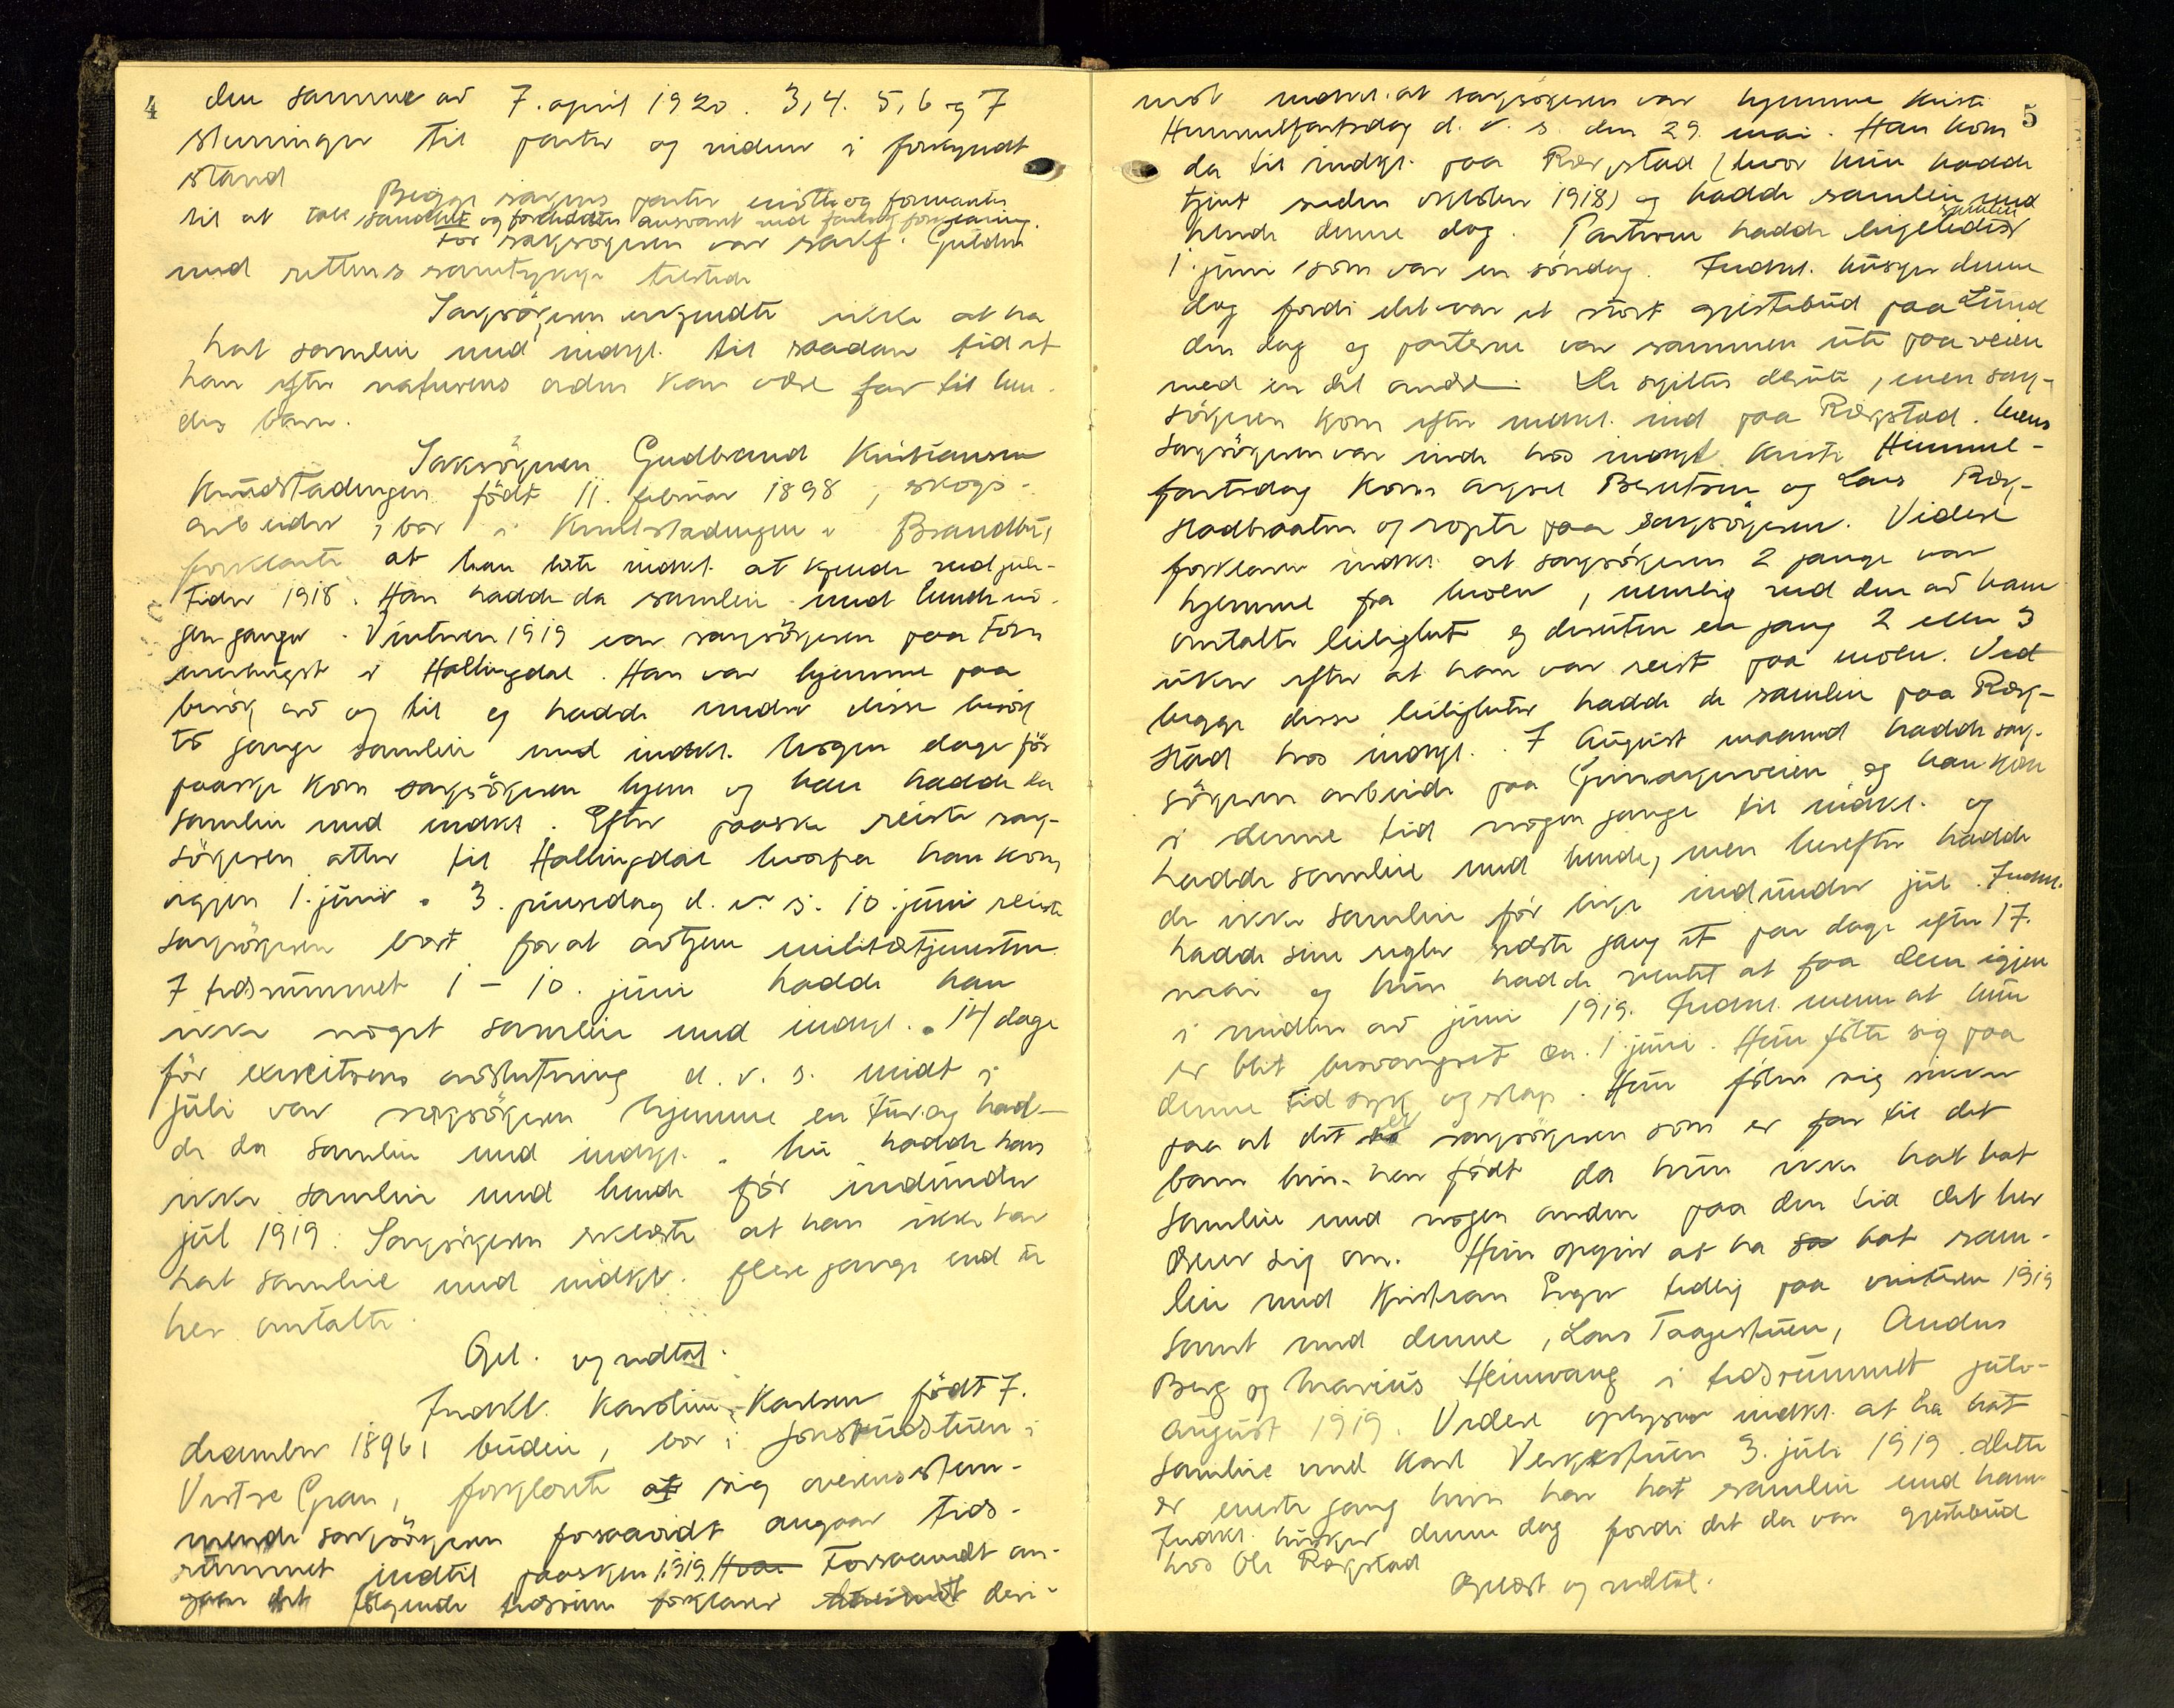 4
den samme av 7. april 1920. 3, 4. 5, 6 og 7
stevninger til parter og vidner i forkyndt
stand
Begge sakens parter mötte og formantes
til at tale sandhet og foreholdtes ansvaret ved falsk forklaring.
For saksögeren var sakf. Gulden
med rettens samtykke tilstede
Saksögeren erkjendte ikke at ha
hat samleie med indkl. til saadan tid at
han efter naturens orden kan være far til hen-
des barn.
Saksögeren Gudbrand Kristiansen
Knudstadengen födt 11. februar 1898, skogs-
arbeider, bor i Knutstadengen i Brandbu,
forklarte at han lærte indkl. at kjende ved jule-
tider 1918. Han hadde da samleie med hende no-
gen ganger. Vinteren 1919 var saksögeren paa töm-
merhugst i Hallingdal. Han var hjemme paa
besök av og til og hadde under disse besök
to gange samleie med indkl. Nogen dage för
paaske kom saksögeren hjem og han hadde da
samleie med indkl. Efter paaske reiste sak-
sögeren atter til Hallingdal hvorfra han kom
igjen 1. juni. 3. pinsedag d. v. s. 10. juni reiste
saksögeren bort for at avtjene militærtjenesten
I tidsrummet 1 – 10. juni hadde han
ikke noget samleie med indkl. 14 dage
för exercitsens avslutning d. v. s. midt i
juli var saksögeren hjemme en tur og had-
de da samleie med indkl. Nu hadde han
ikke samleie med hende för indunder
jul 1919. Saksögeren erklærte at han ikke har
hat samleie med indkl. flere gange end de
her omtalte.
Opl. og vedtat.
Indkl. Karoline Karlsen födt 7.
december 1896, budeie, bor i Jonsrudstuen i
Vestre Gran, forklarte at sig overensstem-
mende saksögeren forsaavidt angaar tids-
rummet indtil paasken 1919. Forsaavidt an-
gaar det fölgende tidsrum forklarer deri-
5
mot indkl. at saksögeren var hjemme Kristi
Himmelfartsdag d. v. s. den 29. mai. Han kom
da til indkl. paa Rækstad (hvor hun hadde
tjent siden oktober 1918) og hadde samleie med
hende denne dag. Parterne hadde likeledes samleie
1. juni som var en söndag. Indkl. husker denne
dag fordi det var et stort gjestebud paa Lund
den dag og parterne var sammen ute paa veien
med en del andre. De skiltes derute, men sak-
sögeren kom efter indkl. ind paa Rækstad. Mens
saksögeren var inde hos indkl. Kristi Himmel-
fartsdag kom Aksel Berntsen og Lars Ræk-
stadbraaten og ropte paa saksögeren. Videre
forklarer indkl. at saksögeren 2 gange var
hjemme fra moen, nemlig ved den av ham
omtalte leilighet og desuten en gang 2 eller 3
uker efter at han var reist paa moen. Ved
begge disse leiligheter hadde de samleie paa Ræk-
stad hos indkl. I August maaned hadde sak-
sögeren arbeide paa veien og han kom
i denne tid nogen gange til indkl. og
hadde samleie med hende, men herefter hadde
de ikke samleie för like indunder jul. Indkl.
hadde sine regler sidste gang et par dage efter 17.
mai og hun hadde ventet at faa dem igjen
i midten av juni 1919. Indkl. mener at hun
er blit besvangret ca. 1. juni. Hun fölte sig paa
denne tid syk og slap. Hun föler sig sikker
paa at det er saksögeren som er far til det
barn hun har födt da hun ikke har hat
samleie med nogen anden paa den tid det her
dreier sig om. Hun opgir at ha hat sam-
leie med Kristian Enger tidlig paa vinteren 1919
samt med denne, Lars Taagestuen, Anders
Berg og Marius Heimvang i tidsrummet juli-
august 1919. Videre oplyser indkl. at ha hat
samleie med Karl 3. juli 1919. Dette
er eneste gang hun har hat samleie med ham.
Indkl. husker denne dag fordi det da var gjestebud
hos Ole Rækstad
Oplæst og vedtat.